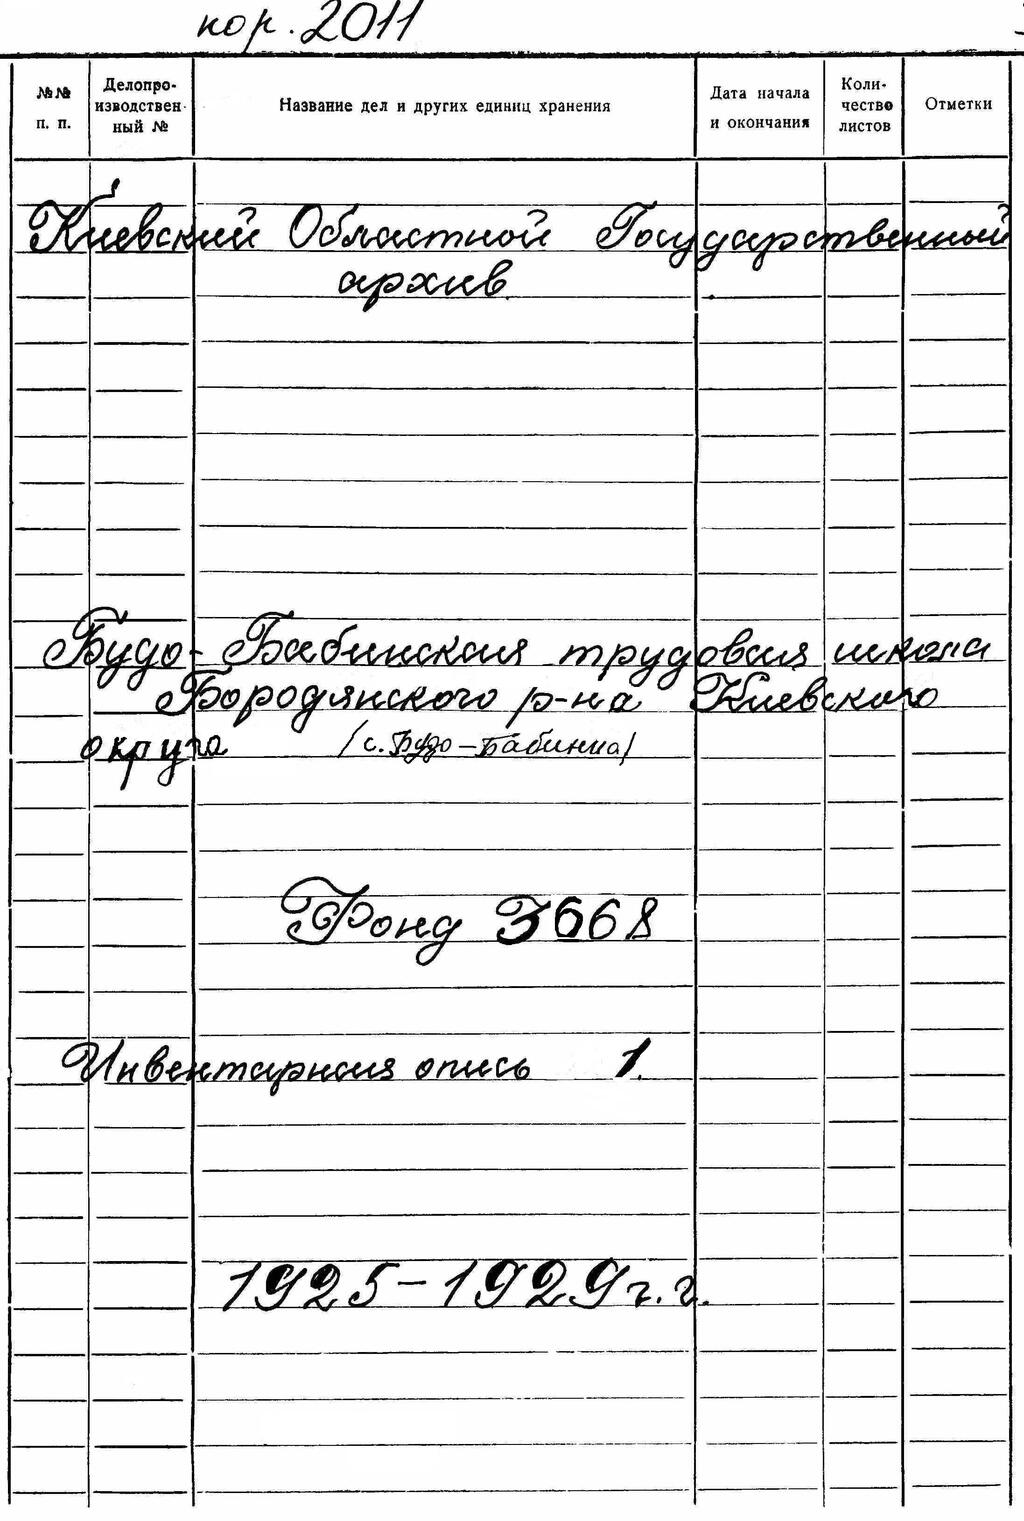 кор. 2011
№№ п. п.
Делопро-
изводствен-
ный №
Название дел и других единиц хранения
Дата начала
и окончания
Коли-
чество
листов
Отметки
Киевский Областной Государственный
архив
Будо-Бабинская трудовая школа
Бородянского р-на Киевского
округа /с. Будо-Бабинка/
Фонд 3668
Инвентарная опись 1.
1925-1929 г.г.